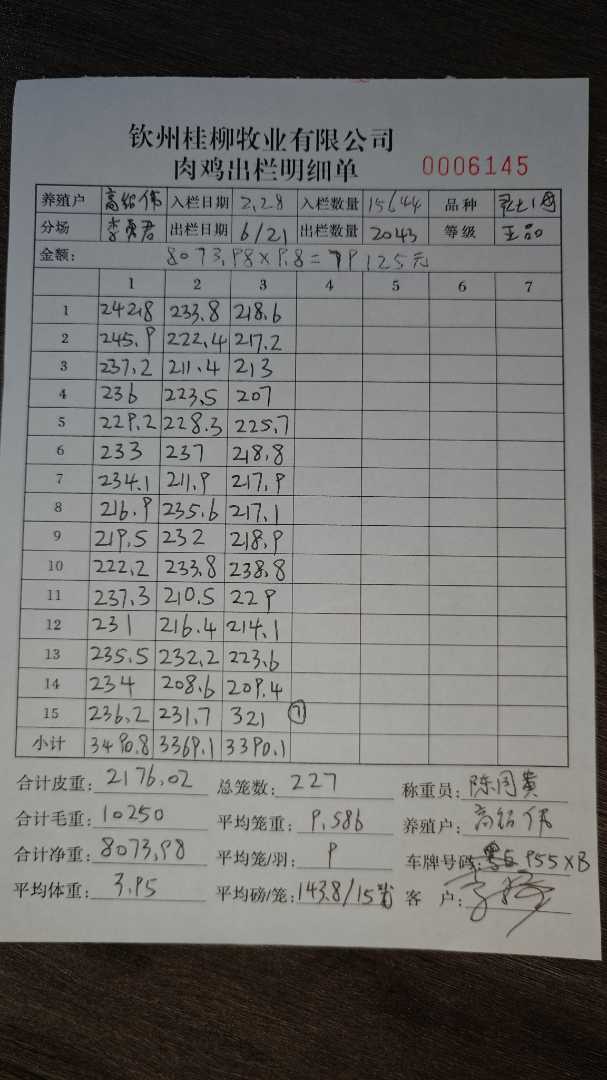 钦州桂柳牧业有限公司
肉鸡出栏明细单 0006145
养殖户 高铭伟 入栏日期 2.28 入栏数量 15644 品种
分场 李勇君 出栏日期 6/21 出栏数量 2043 等级 王品
金额: 8073.98×9.8=79125元
1 2 3 4 5 6 7
1 242.8 233.8 218.6
2 245.9 222.4 217.2
3 237.2 211.4 213
4 236 223.5 207
5 229.2 228.3 225.7
6 233 237 218.8
7 234.1 211.9 217.9
8 216.9 235.6 217.1
9 219.5 232 218.9
10 222.2 233.8 238.8
11 237.3 210.5 229
12 231 216.4 214.1
13 235.5 232.2 223.6
14 234 208.6 209.4
15 236.2 231.7 321 ⑦
小计 3490.8 3369.1 3390.1
合计皮重: 2176.02 总笼数: 227 称重员: 陈同贵
合计毛重: 10250 平均笼重: 9.586 养殖户: 高铭伟
合计净重: 8073.98 平均笼/羽: 9 车牌号码: 955XB
平均体重: 3.95 平均磅/笼: 143.8/15 客户: